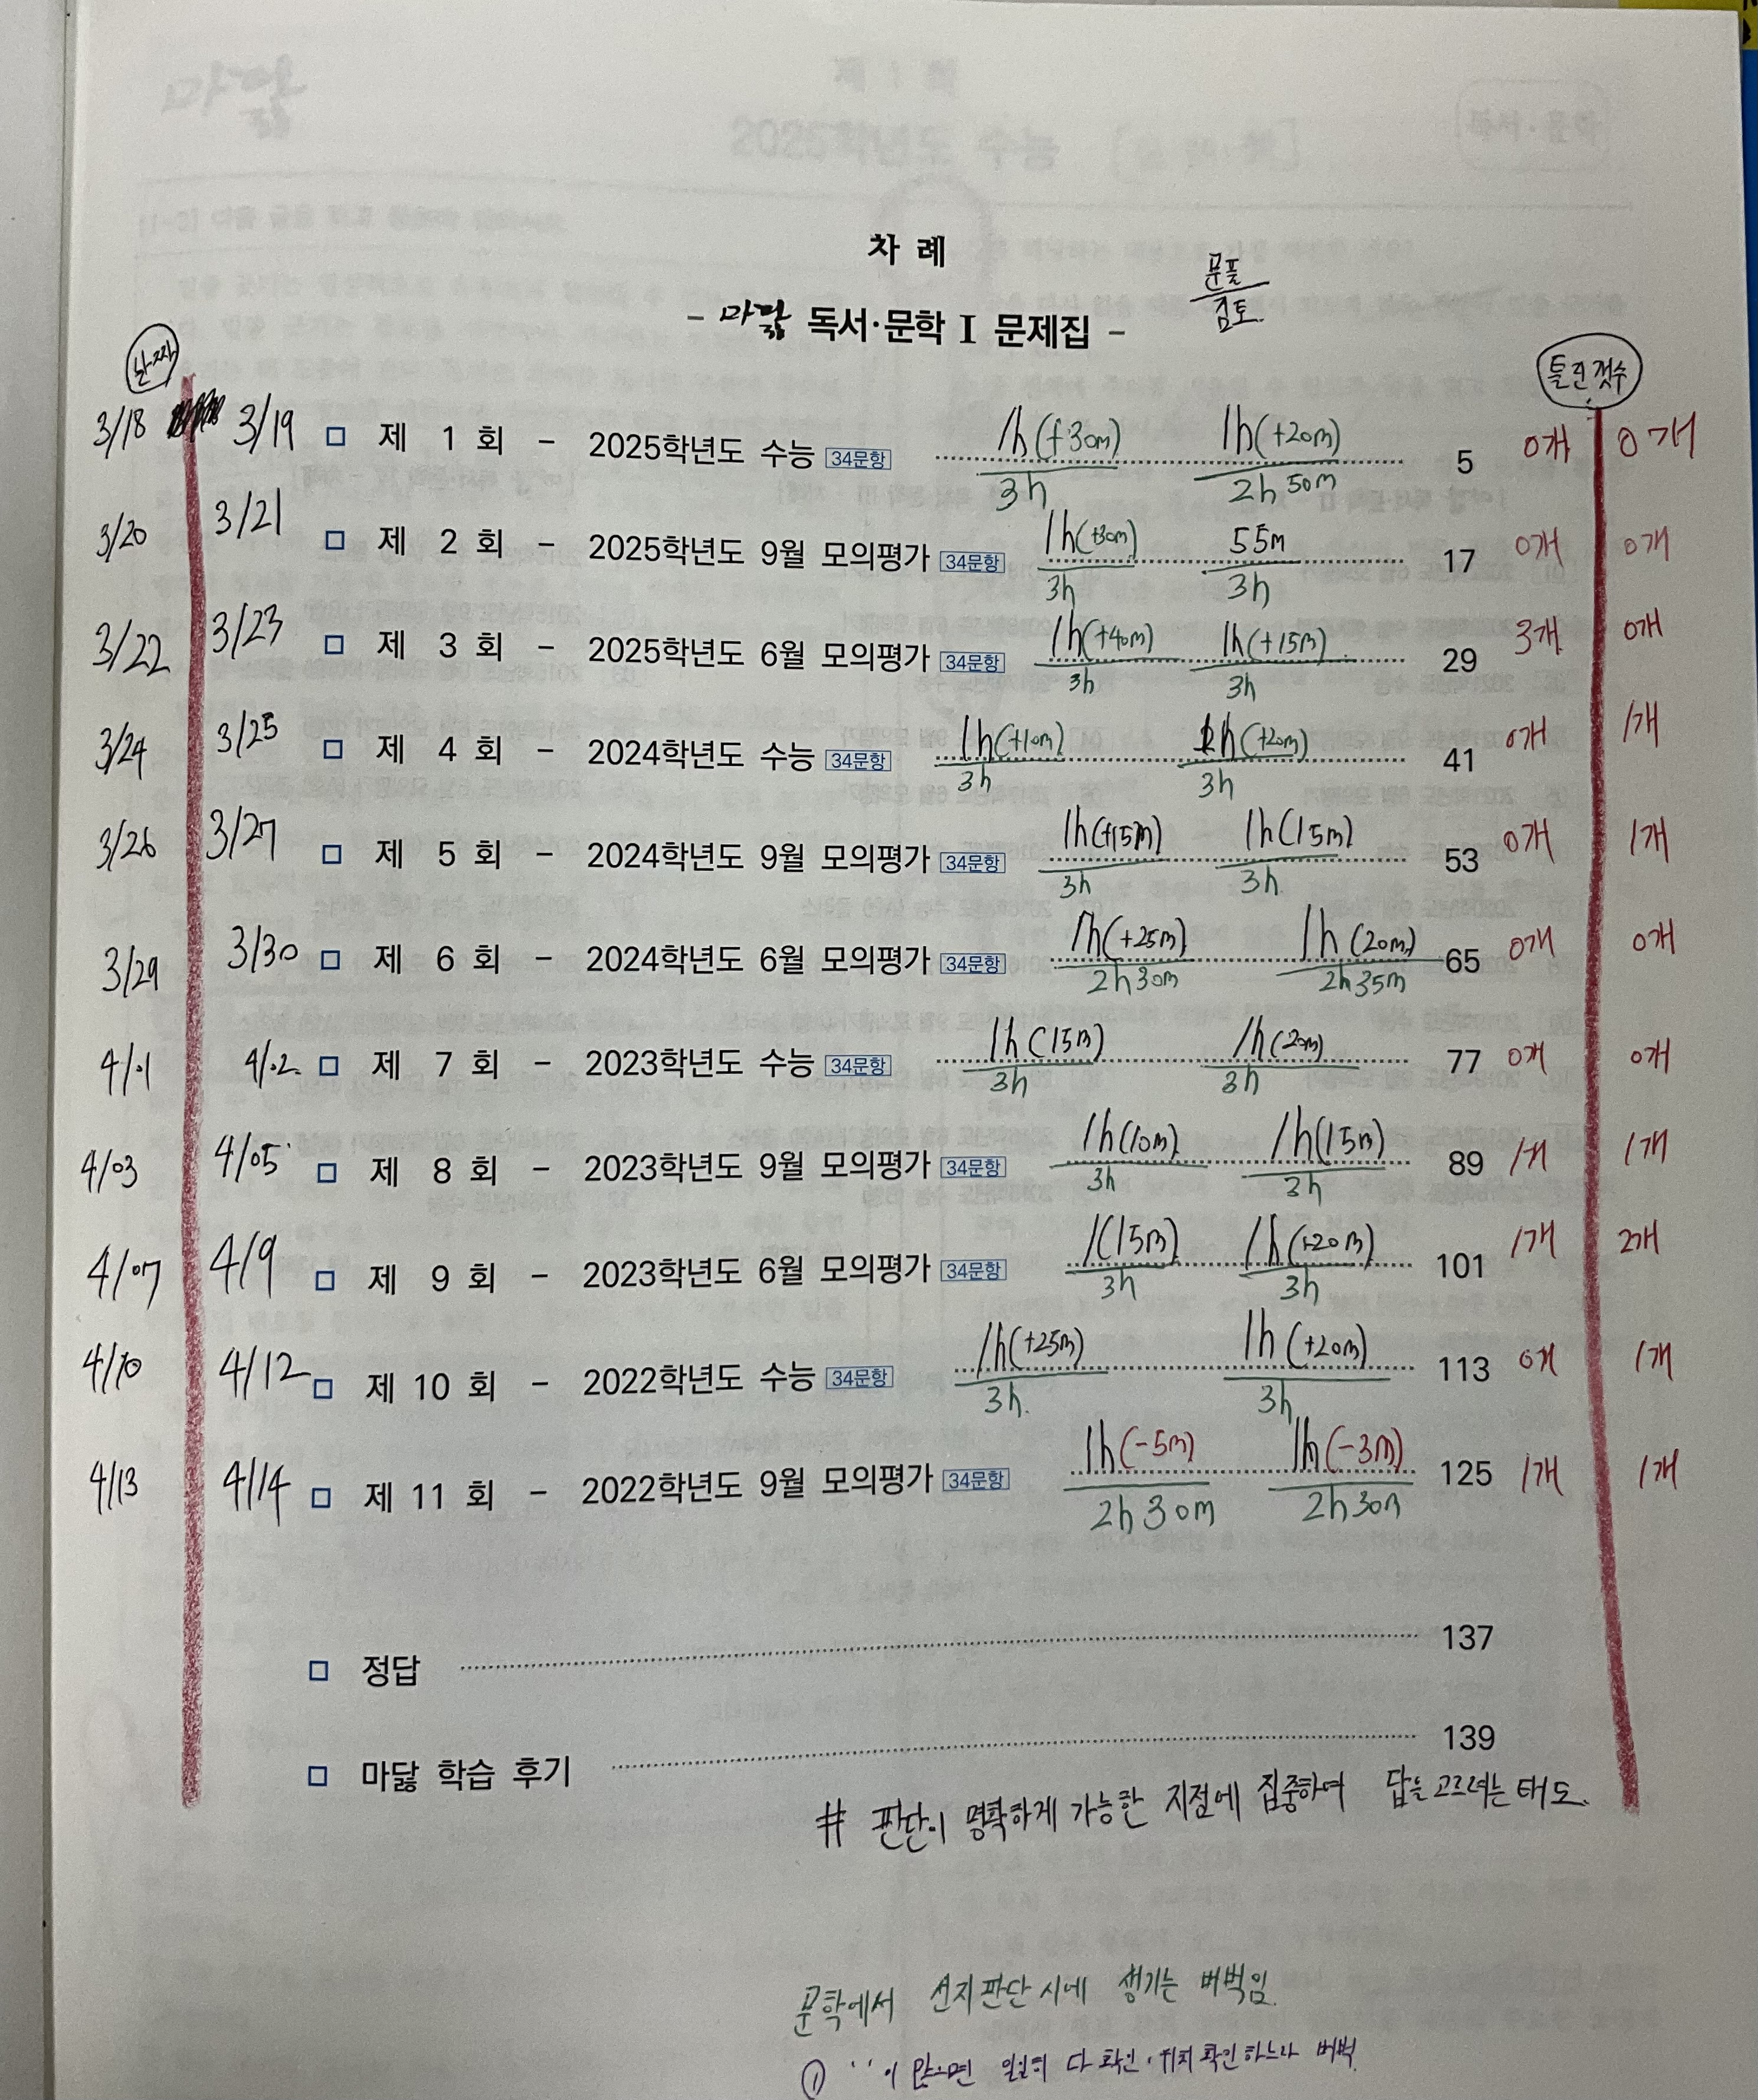 차 례
문풀
검토.
- 마닳 독서·문학 I 문제집 -
날짜
틀린 갯수
3/18 3/19 □ 제 1 회 - 2025학년도 수능 34문항 1h(+30m) 1h(+20m) 5 0개 0개
3h 2h 50m
3/20 3/21 □ 제 2 회 - 2025학년도 9월 모의평가 34문항 1h(+30m) 55m 17 0개 0개
3h 3h
3/22 3/23 □ 제 3 회 - 2025학년도 6월 모의평가 34문항 1h(+40m) 1h(+15m) 29 3개 0개
3h 3h
3/24 3/25 □ 제 4 회 - 2024학년도 수능 34문항 1h(+10m) 1h(+20m) 41 0개 1개
3h 3h
3/26 3/27 □ 제 5 회 - 2024학년도 9월 모의평가 34문항 1h(+15m) 1h(15m) 53 0개 1개
3h 3h
3/29 3/30 □ 제 6 회 - 2024학년도 6월 모의평가 34문항 1h(+25m) 1h(20m) 65 0개 0개
2h 30m 2h 35m
4/.1 4/.2 □ 제 7 회 - 2023학년도 수능 34문항 1h(15m) 1h(20m) 77 0개 0개
3h 3h
4/03 4/05 □ 제 8 회 - 2023학년도 9월 모의평가 34문항 1h(10m) 1h(15m) 89 1개 1개
3h 3h
4/07 4/9 □ 제 9 회 - 2023학년도 6월 모의평가 34문항 1(15m) 1h(+20m) 101 1개 2개
3h 3h
4/10 4/12 □ 제 10 회 - 2022학년도 수능 34문항 1h(+25m) 1h(+20m) 113 0개 1개
3h. 3h
4/13 4/14 □ 제 11 회 - 2022학년도 9월 모의평가 34문항 1h(-5m) 1h(-3m) 125 1개 1개
2h 30m 2h 30m
□ 정답 137
□ 마닳 학습 후기 139
# 판단이 명확하게 가능한 지점에 집중하여 답을 고르려는 태도.
문학에서 선지판단 시에 생기는 버벅임
① ' ' 이 많으면 일일히 다 확인·위치 확인하느라 버벅